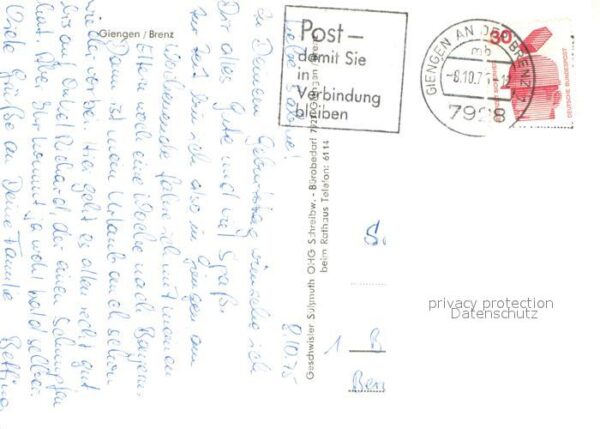 Giengen / Brenz
Post –
damit Sie
in
Verbindung
bleiben
GIENGEN AN DER BRENZ
mb
-8.10.75-12
7928
30
DEUTSCHE BUNDESPOST
8.10.75
Liebe Sabine!
Zu Deinem Geburtstag wünsche ich
Dir alles Gute und viel Spaß.
Zur Zeit bin ich also in Giengen am
Wochenende fahre ich mit meinen
Eltern noch eine Woche nach Bayern.
Dann ist mein Urlaub auch schon
wieder vorbei. Hier geht es allen recht gut
bis auf Onkel Richard, der einen Schnupfen
hat. Aber Ihr kommt ja wohl bald selber.
Viele Grüße an Deine Familie
Bettina
Geschwister Sülzmuth OHG Schreibw. - Bürobedarf 7928 Giengen / Brenz
beim Rathaus Telefon: 6114
S
1 B
Ber
privacy protection
Datenschutz